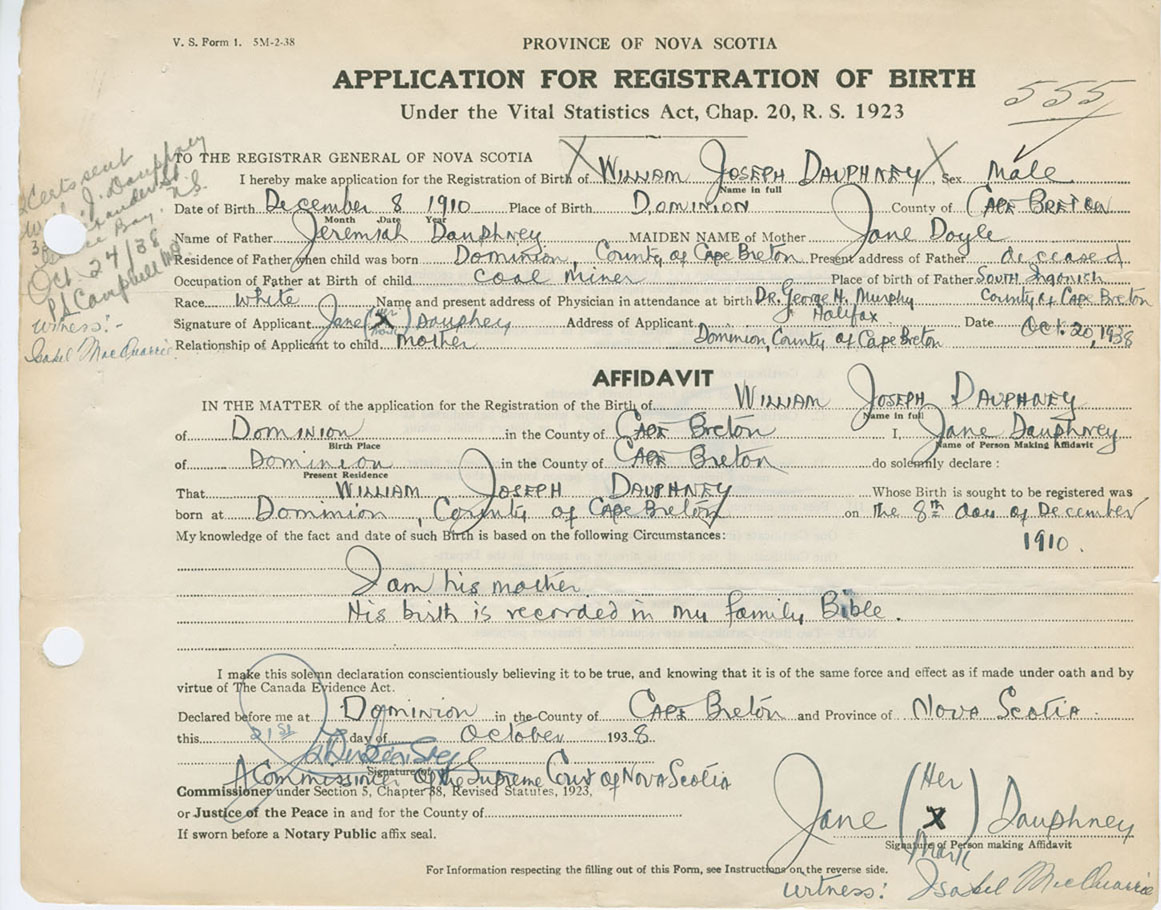 V. S. Form 1. 5M-2-38
PROVINCE OF NOVA SCOTIA
APPLICATION FOR REGISTRATION OF BIRTH
555
Under the Vital Statistics Act, Chap. 20, R. S. 1923
TO THE REGISTRAR GENERAL OF NOVA SCOTIA
I hereby make application for the Registration of Birth of X WILLIAM JOSEPH DAUPHNEY X Sex Male
Name in full
Date of Birth December 8 1910 Place of Birth DOMINION County of CAPE BRETON
Month Date Year
Name of Father Jeremiah Dauphney MAIDEN NAME of Mother Jane Doyle
Residence of Father when child was born Dominion, County of Cape Breton Present address of Father deceased
Occupation of Father at Birth of child coal miner Place of birth of Father South Ingonish
Race White Name and present address of Physician in attendance at birth Dr. George H. Murphy County of Cape Breton
Halifax
Signature of Applicant Jane (Her X mark) Dauphney Address of Applicant Date Oct. 20, 1938
Relationship of Applicant to child mother Dominion, County of Cape Breton
Certs sent
J. Dauphney
Bay, N.S.
Oct. 24/38
Campbell
Witness:-
Isabel MacQuarrie
AFFIDAVIT
IN THE MATTER of the application for the Registration of the Birth of WILLIAM JOSEPH DAUPHNEY
Name in full
of DOMINION in the County of CAPE BRETON I, Jane Dauphney
Birth Place Name of Person Making Affidavit
of Dominion in the County of CAPE Breton do solemnly declare :
Present Residence
That WILLIAM JOSEPH DAUPHNEY Whose Birth is sought to be registered was
born at Dominion, County of CAPE Breton on the 8th day of December
My knowledge of the fact and date of such Birth is based on the following Circumstances: 1910.
I am his mother.
His birth is recorded in my family Bible.
I make this solemn declaration conscientiously believing it to be true, and knowing that it is of the same force and effect as if made under oath and by
virtue of The Canada Evidence Act.
Declared before me at Dominion in the County of CAPE Breton and Province of NOVA SCOTIA.
this 21st day of October 1938
Signature of
A Commissioner of the Supreme Court of NOVA SCOTIA
Commissioner under Section 5, Chapter 38, Revised Statutes, 1923,
or Justice of the Peace in and for the County of
If sworn before a Notary Public affix seal.
Jane (Her X Mark) Dauphney
Signature of Person making Affidavit
For Information respecting the filling out of this Form, see Instructions on the reverse side.
Witness: Isabel MacQuarrie